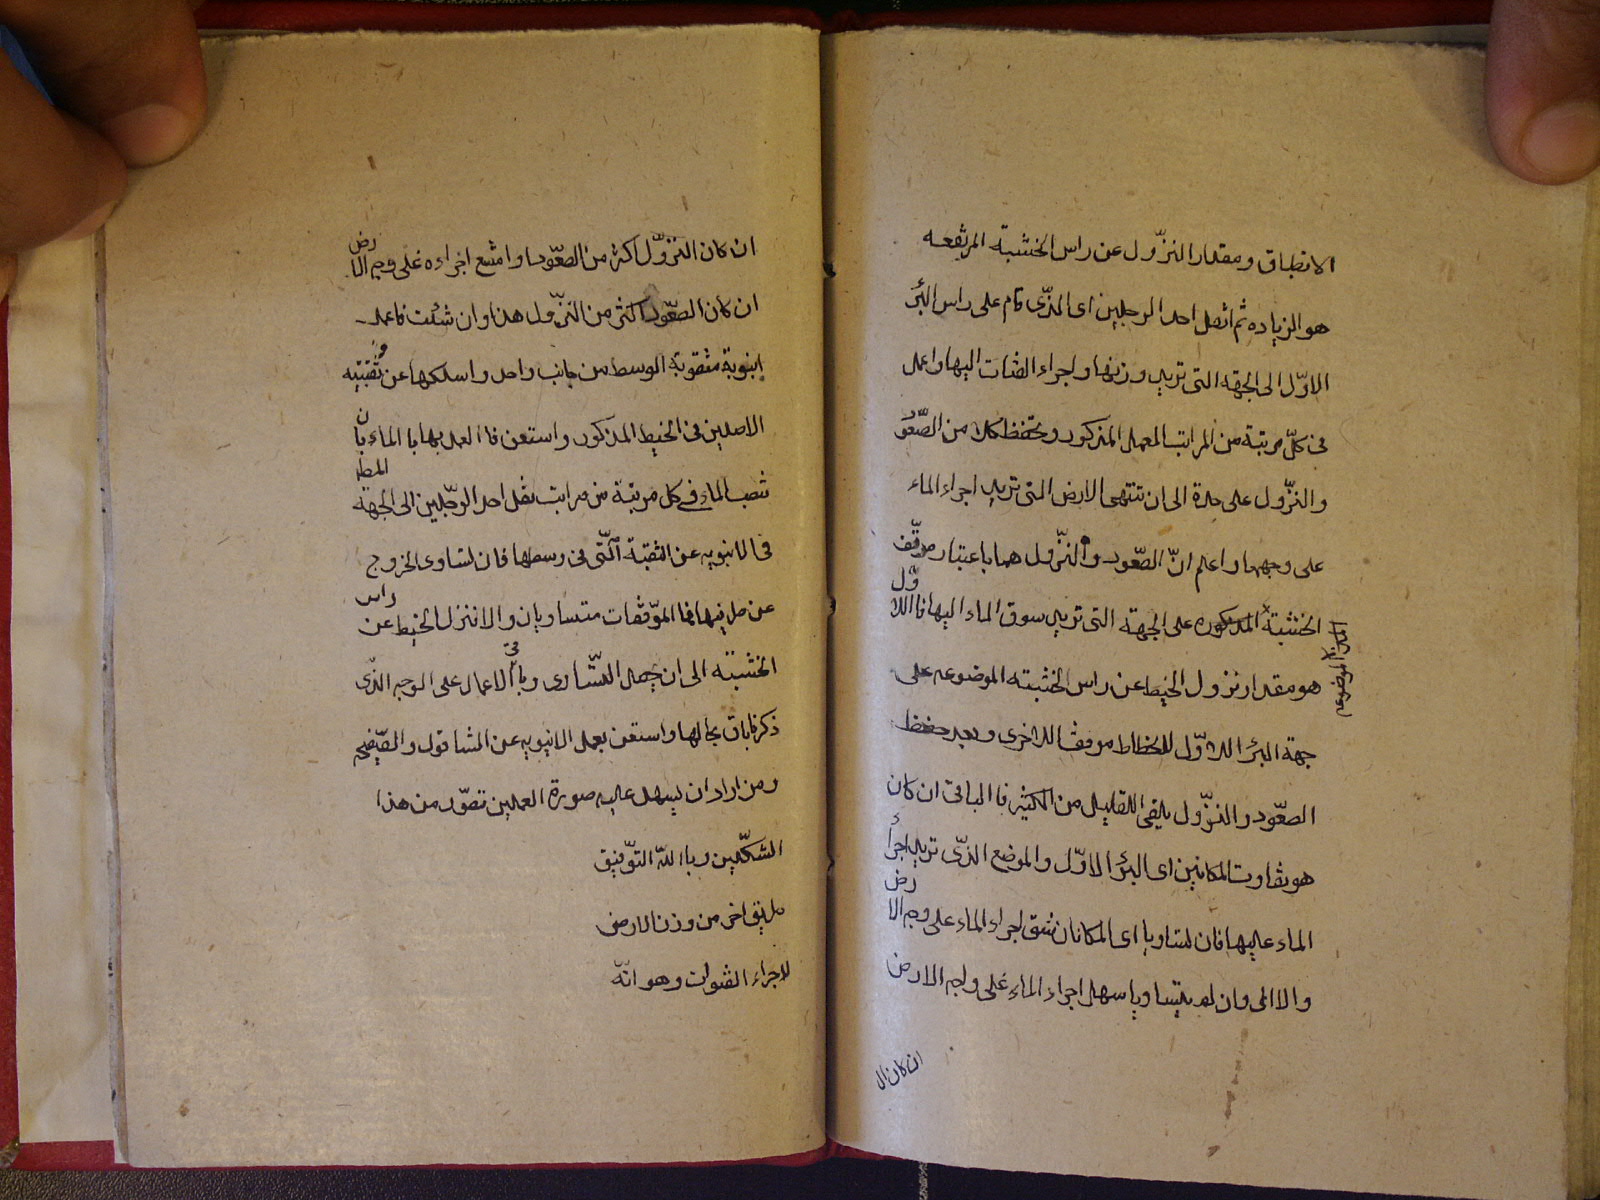 الانطباق ومقدار النزّول عن راس الخشبة المرتفعه
هو الزياده ثم انقل احد الرجلين اى الذّى قام على راس البئر
الاوّل الى الجهة التى تريد وزنها واجراء القنات اليها واعمل
فى كلّ مرتبة من المراتب العمل المذكور وتحفظ كلا من الصّعود
والنزّول على حدة الى ان تنتهى الارض التى تريد اجراء الماء
على وجهها واعلم انّ الصّعود والنزّول هما باعتبار موقّف
الخشبة المذكوره على الجهة التى تريد سوق الماء اليها فالاوّل
المذكوره الموضوعه
هو مقدار نزول الخيط عن راس الخشبته الموضوعه على
جهة البئر الاوّل للخطاط موقفا للاخرى وبعد حفظ
الصعّود والنزّول يلقى القليل من الكثير فا الباقى ان كان
هو تفاوت المكانين اى البئر الاوّل والموضع الذّى تريد اجراء
الماء عليها فان تساويا اى المكانان شق اجراء الماء على وجه الارض
والا اى وان لم يتساويا سهل اجراء الماء على وجه الارض
ان كان ال
ان كان النزّول اكثر من الصعّود وامتنع اجراءه على وجه الارض
ان كان الصعّود اكثر من النزّول هذا وان شئت فاعمل
انبوبة مثقوبة الوسط من جانب واحد واسلكها عن ثقبتيه
الاصلين فى الخيط المذكور واستعن فا العمل بها با الماء بان
تصب الماء فى كل مرتبة من مراتب نقل احد الرجّلين الى الجهة المط
فى الانبوبه عن الثقبة الّتى فى وسطها فان تساوى الخروج
عن طرفيها فا الموقّفات متساويان والا فنزل الخيط عن راس
الخشبته الى ان يحصل التسّاوى وباقى الاعمال على الوجه الذّى
ذكر باق بحالها واستعن بعمل الانبوبه عن الشاقول والصّفيحه
ومن اراد ان يسهل عليه صورة العملين تصوّر من هذا
الشكّلين وبا اللّه التوّفيق
طريق اخر من وزن الارض
لاجراء القنوات وهو انّه